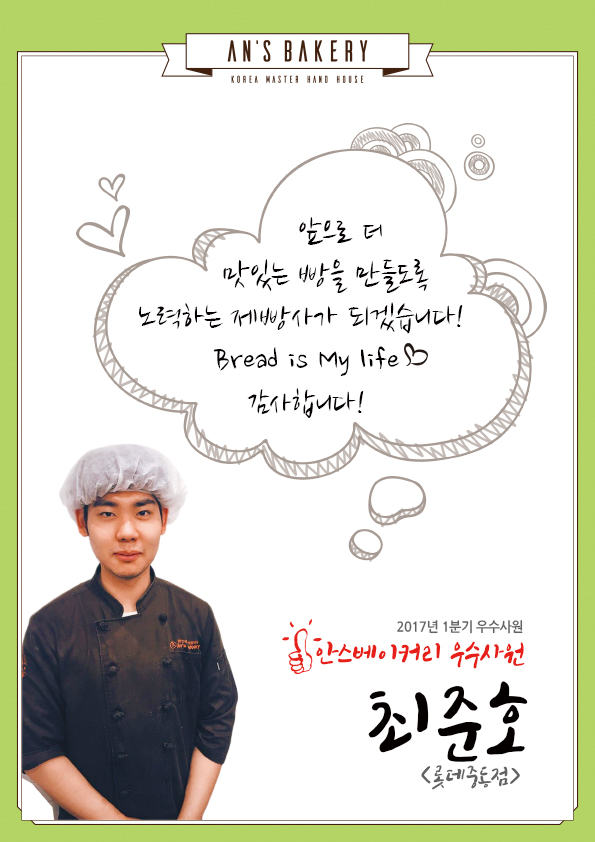 AN'S BAKERY
KOREA MASTER HAND HOUSE
앞으로 더
맛있는 빵을 만들도록
노력하는 제빵사가 되겠습니다!
Bread is My life
감사합니다!
2017년 1분기 우수사원
안스베이커리 우수사원
최준호
<롯데중동점>